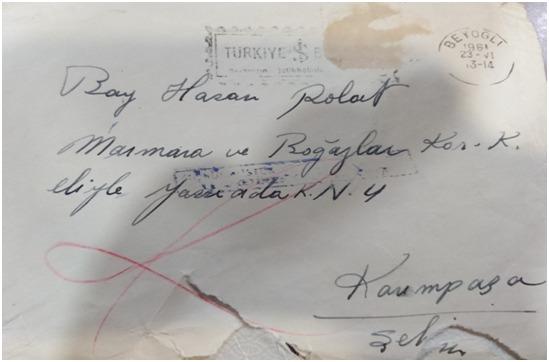 TÜRKİYE İŞ B
BEYOĞLU
1961
23-VI
13-14
Bay Hasan Polat
Marmara ve Boğazlar Kor. K.
eliyle Yassıada K. N. 4
Kasımpaşa
Şehir